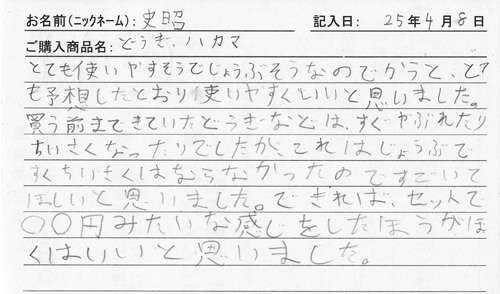 お名前(ニックネーム): 史昭 記入日: 25年4月8日
ご購入商品名: どうぎ、ハカマ
とても使いやすそうでじょうぶそうなのでかうと、とて
も予想したとおり使いやすくいいと思いました。
買う前まできていたどうぎなどは、すぐやぶれたり
ちいさくなったりでしたが、これはじょうぶで
すぐちいさくはならなかったのですごいて
ほしいと思いました。できれば、セットで
〇〇円みたいな感じをしたほうがぼ
くはいいと思いました。